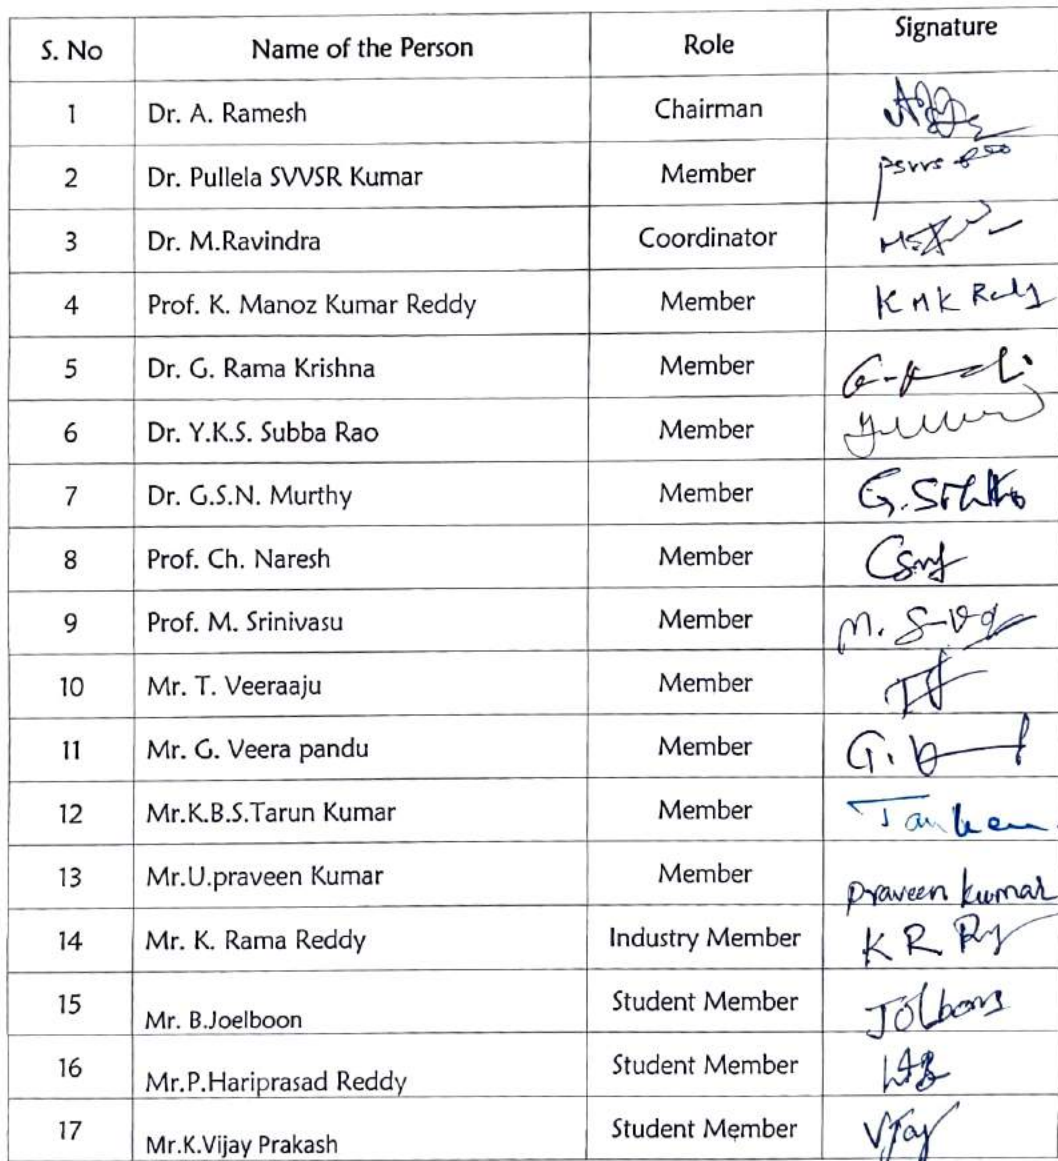 S. No Name of the Person Role Signature
1 Dr. A. Ramesh Chairman
2 Dr. Pullela SVVSR Kumar Member
3 Dr. M.Ravindra Coordinator
4 Prof. K. Manoz Kumar Reddy Member K M K Reddy
5 Dr. G. Rama Krishna Member
6 Dr. Y.K.S. Subba Rao Member
7 Dr. G.S.N. Murthy Member
8 Prof. Ch. Naresh Member
9 Prof. M. Srinivasu Member
10 Mr. T. Veeraaju Member
11 Mr. G. Veera pandu Member
12 Mr.K.B.S.Tarun Kumar Member
13 Mr.U.praveen Kumar Member praveen kumar
14 Mr. K. Rama Reddy Industry Member
15 Mr. B.Joelboon Student Member
16 Mr.P.Hariprasad Reddy Student Member
17 Mr.K.Vijay Prakash Student Member Vijay